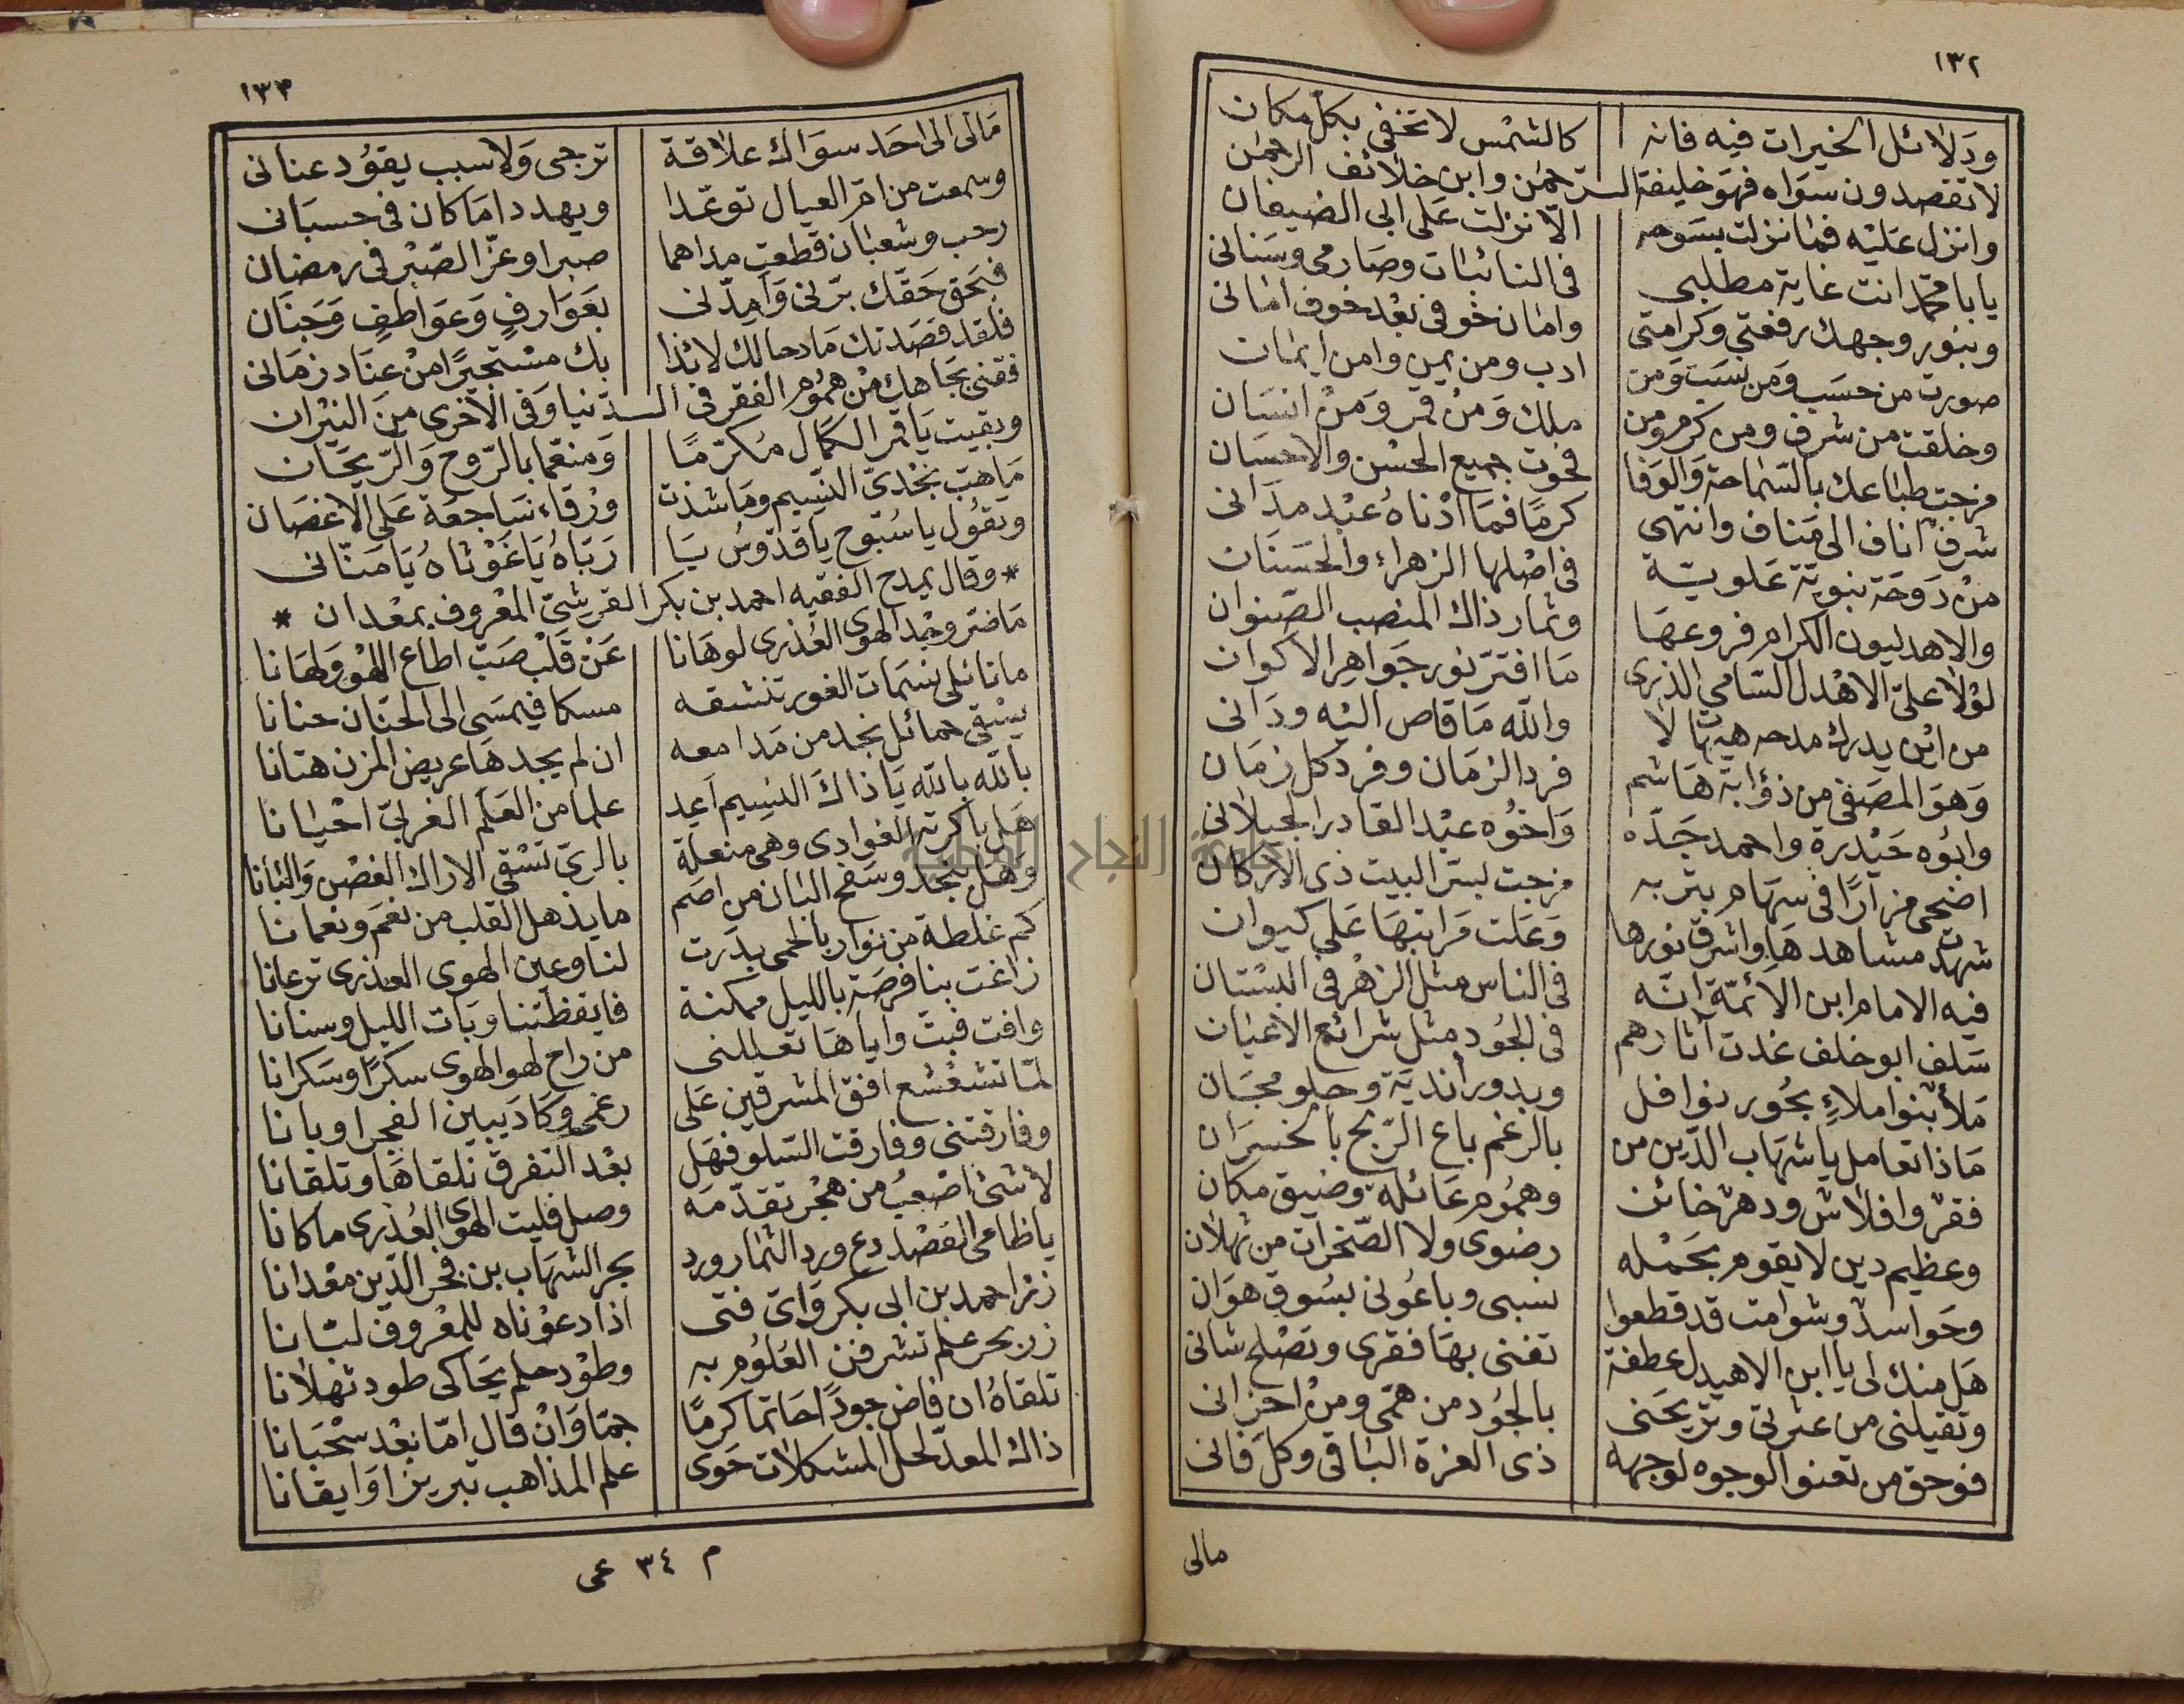 ١٣٢
ودلائل الخيرات فيه فانه كالشمس لا تخفى بكل مكان
لا تقصدون سواه فهو خليفة الرحمن وابن خلائف الرحمن
وانزل عليه فما نزلت بسوحه الا نزلت على ابى الضيفان
يا با محمد انت غاية مطلبى فى النائبات وصارمى وسنانى
وبنور وجهك رفعتى وكرامتى وامان خوفى بعد خوف امانى
صورت من حسب ومن نسب ومن ادب ومن يمن وامن ايمان
وخلقت من شرف ومن كرم ومن ملك ومن قمر ومن انسان
مزجت طباعك بالسماحة والوفا فحوت جميع الحسن والاحسان
شرف اناف الى مناف وانتهى كرما فما ادناه عبد مدانى
من دوحة نبوية علوية فى اصلها الزهراء والحسنان
والاهدليون الكرام فروعها وثمار ذاك المنصب الصنوان
لولا على الاهدل السامى الذرى ما افتر نور جواهر الاكوان
من اين يدرك مدحه هيهات لا والله ما قاص اليه ودانى
وهو المصفى من ذؤابة هاشم فرد الزمان وفرد كل زمان
وابوه حيدرة واحمد جده واخوه عبد القادر الجيلانى
اضحى مزارا فى سهام بتربه مزجت بستر البيت ذى الاركان
شهدت مشاهدها واشرق نورها وعلت مراتبها على كيوان
فيه الامام ابن الائمة انه فى الناس مثل الزهر فى البستان
سلف ابو خلف غدت آثارهم فى الجود مثل شرائع الاعيان
ملأ بنوا ملاء بحور نوافل وبدور أندية وحلو مجان
ماذا تعامل يا شهاب الدين من بالرغم باع الربح بالخسران
فقر وافلاش ودهر خائن وهموم عائلة وضيق مكان
وعظيم دين لا يقوم بحمله رضوى ولا الصخرات من ثهلان
وحواسد وشوامت قد قطعوا سببى وباعونى بسوق هوان
هل منك لى يا ابن الاهيدل عطفة تغنى بها فقرى وتصلح شانى
وتقيلنى من عثرتى وتريحنى بالجود من همى ومن احزانى
فوحق من تعنو الوجوه لوجهه ذى العزة الباقى وكل فانى
مالى
١٣٣
مالى الى احد سواك علاقة ترجى ولا سبب يقود عنانى
وسمعت من ام العيال توعدا ويهددا ما كان فى حسبانى
رجب وشعبان قطعت مداهما صبرا وعز الصبر فى رمضان
فبحق حقك برنى وامدنى بعوارف وعواطف وحنان
فلقد قصدتك مادحا لك لائذا بك مستجيرا من عناد زمانى
فقنى بجاهك من هموم الفقر فى الدنيا وفى الاخرى من النيران
وبقيت يا قمر الكمال مكرما ومنعما بالروح والريحان
ما هب نجدى النسيم وما شذت ورقاء ساجعة على الاغصان
ويقول يا سبوح يا قدوس يا رباه يا غوثاه يا منانى
* وقال يمدح الفقيه احمد بن بكر القرشى المعروف بمعدان *
ما ضر وجد الهوى العذرى لو هانا عن قلب صب اطاع اللهو ولهانا
مانا ئلى نسمات الغور تنشقه مسكا فيمسى الى الحنان حنانا
يسقى حمائل نجد من مدامعه ان لم يجدها عريض المزن هتانا
بالله بالله يا ذاك النسيم اعد علما من العلم الغربى احيانا
هل باكرته الغوادى وهى منعلة بالرى تسقى الاراك الغصن والبانا
وهل بنجد وسفح البان من اضم ما يذهل القلب من نعم ونعمانا
كم غلطة من نوار بالحمى بدرت لنا وعين الهوى العذرى ترعانا
زاغت بنا فرصة بالليل ممكنة فايقظتنا وبات الليل وسنانا
وافت فبت واياها تعللنى من راح لهو الهوى سكرا وسكرانا
لما تشعشع افق المشرقين على رغمى وكاد يبين الفجر او بانا
وفارقتنى وفارقت السلو فهل بعد التفرق نلقاها وتلقانا
لا شئ اصعب من هجر تقدمه وصل فليت الهوى العذرى ما كانا
يا ظامى القصد دع ورد الثمار ورد بحر الشهاب بن فخر الدين معدانا
زر احمد بن ابى بكر واى فتى اذا دعوناه للمعروف لبانا
زر بحر علم تشرفن العلوم به وطود حلم يحاكى طود ثهلانا
تلقاه ان فاض جودا حاتما كرما جما وان قال اما بعد سحبانا
ذاك المعد لحل المشكلات حوى علم المذاهب تبريزا وايقانا
م ٣٤ عى